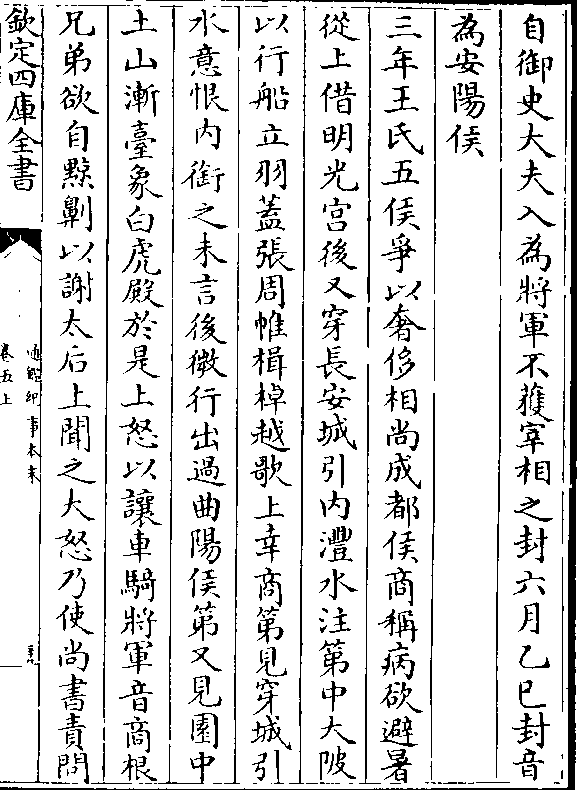 自御史大夫入為將軍不獲宰相之封六月乙巳封音
為安陽侯
三年王氏五侯爭以奢侈相尚成都侯商稱病欲避暑
從上借明光宫後又穿長安城引内灃水注第中大陂
以行船立羽蓋張周帷楫棹越歌上幸商第見穿城引
水意恨内銜之未言後微行出過曲陽侯第又見園中
土山漸臺象白虎殿於是上怒以讓車騎將軍音商根
兄弟欲自黥劓以謝太后上聞之大怒乃使尚書責問
欽定四庫全書
通鑑紀事本末
卷五上